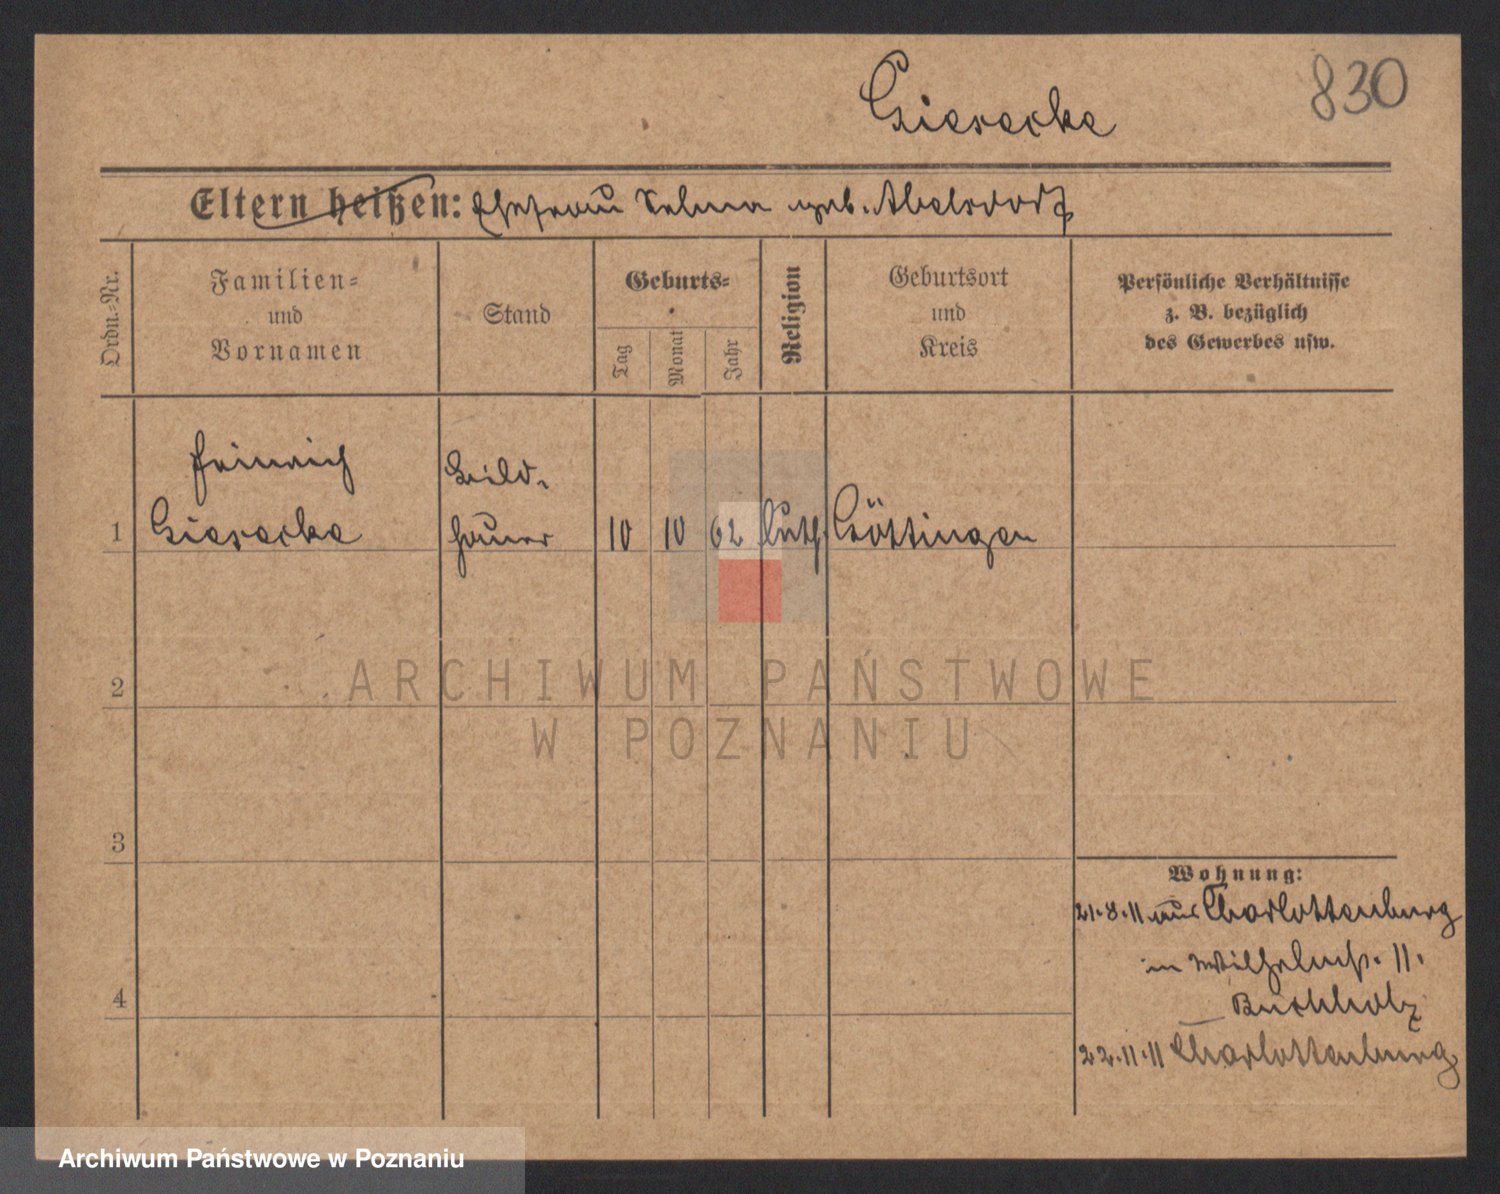 Giesecke
830
Eltern heißen: Ehefrau Selma geb. Abelsdorf
Ordn.-Nr.
Familien-
und
Vornamen
Stand
Geburts-
Tag
Monat
Jahr
Religion
Geburtsort
und
Kreis
Persönliche Verhältnisse
z. B. bezüglich
des Gewerbes usw.
1
Heinrich
Giesecke
Bild-
hauer
10
10
62
luth.
Göttingen
2
ARCHIWUM PAŃSTWOWE
W POZNANIU
3
Wohnung:
21.8.11 aus Charlottenburg
in Wilhelmstr. 11.
Buchholz
4
22.11.11 Charlottenburg
Archiwum Państwowe w Poznaniu